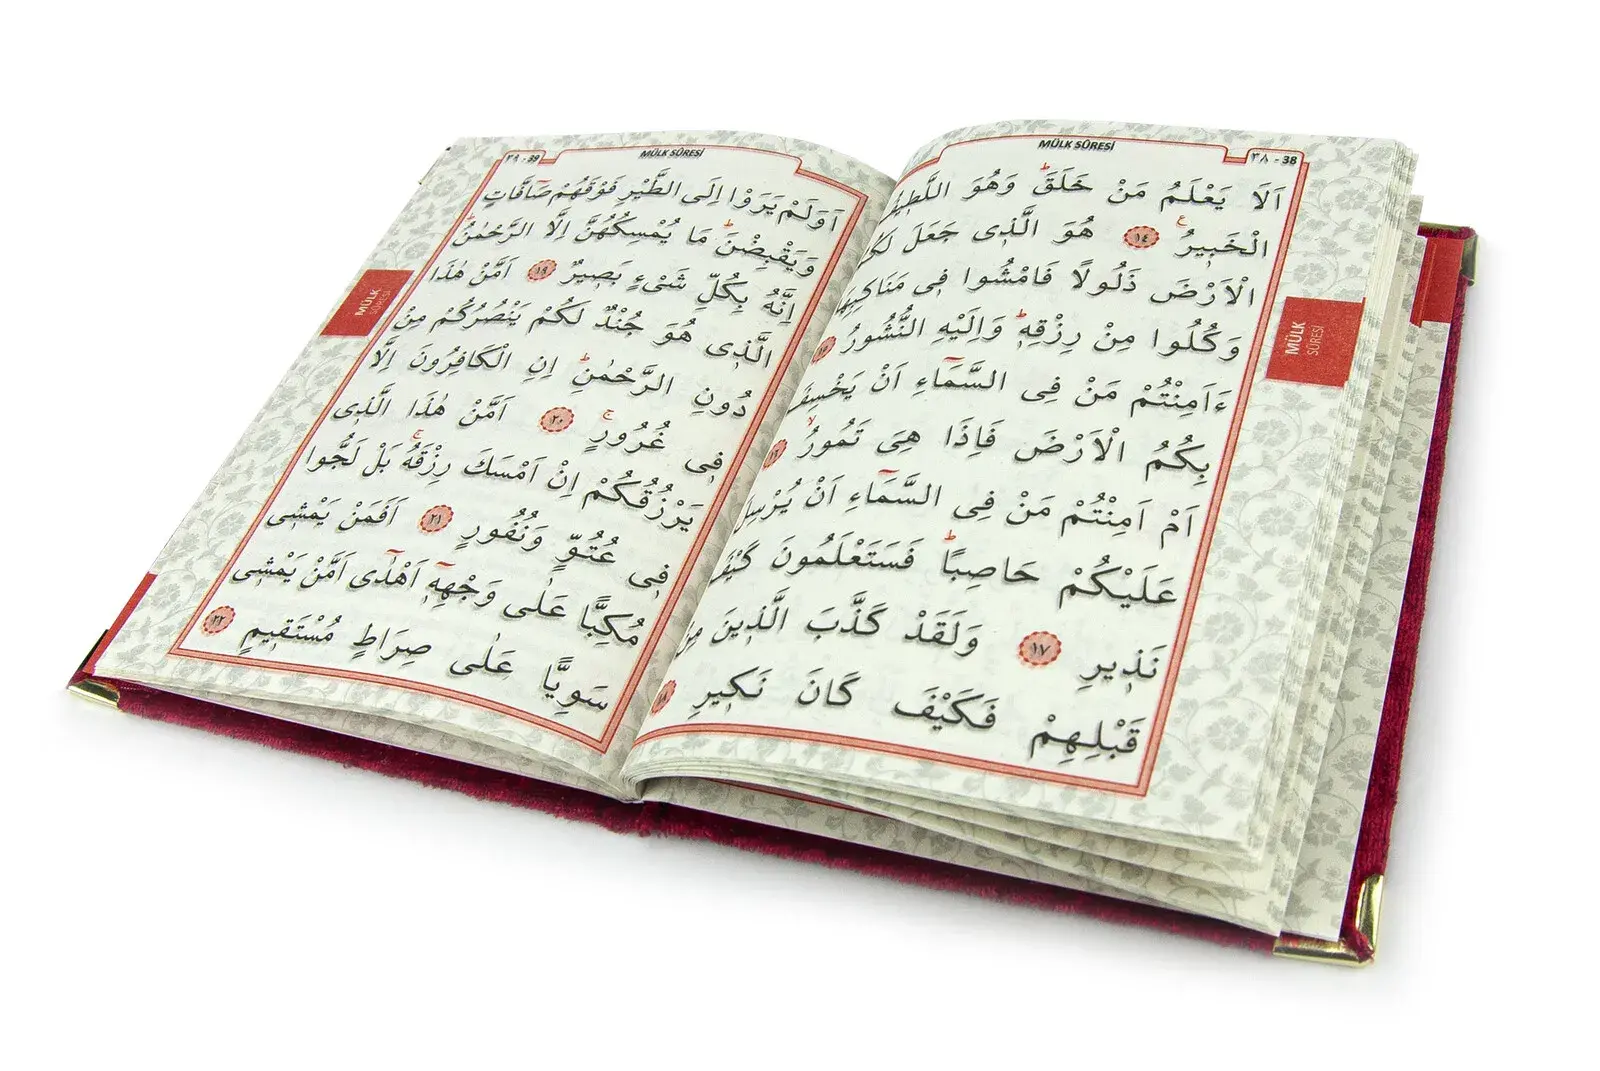 MÜLK SÛRESİ
٣٨ - 38
اَلَا يَعْلَمُ مَنْ خَلَقَۜ وَهُوَ اللَّط۪يفُ
الْخَب۪يرُ۟ ﴿١٤﴾ هُوَ الَّذ۪ي جَعَلَ لَكُمُ
الْاَرْضَ ذَلُولًا فَامْشُوا ف۪ي مَنَاكِبِهَا
وَكُلُوا مِنْ رِزْقِه۪ۜ وَاِلَيْهِ النُّشُورُ ﴿١٥﴾
ءَاَمِنْتُمْ مَنْ فِي السَّمَٓاءِ اَنْ يَخْسِفَ
بِكُمُ الْاَرْضَ فَاِذَا هِيَ تَمُورُۙ ﴿١٦﴾
اَمْ اَمِنْتُمْ مَنْ فِي السَّمَٓاءِ اَنْ يُرْسِلَ
عَلَيْكُمْ حَاصِبًاۜ فَسَتَعْلَمُونَ كَيْفَ
نَذ۪يرِ ﴿١٧﴾ وَلَقَدْ كَذَّبَ الَّذ۪ينَ مِنْ
قَبْلِهِمْ فَكَيْفَ كَانَ نَك۪يرِ ﴿١٨﴾
MÜLK
SÛRESİ
MÜLK SÛRESİ
٣٩ - 39
اَوَلَمْ يَرَوْا اِلَى الطَّيْرِ فَوْقَهُمْ صَٓافَّاتٍ
وَيَقْبِضْنَۜ مَا يُمْسِكُهُنَّ اِلَّا الرَّحْمٰنُۜ
اِنَّهُ بِكُلِّ شَيْءٍ بَص۪يرٌ ﴿١٩﴾ اَمَّنْ هٰذَا
الَّذ۪ي هُوَ جُنْدٌ لَكُمْ يَنْصُرُكُمْ مِنْ
دُونِ الرَّحْمٰنِۜ اِنِ الْكَافِرُونَ اِلَّا
ف۪ي غُرُورٍۚ ﴿٢٠﴾ اَمَّنْ هٰذَا الَّذ۪ي
يَرْزُقُكُمْ اِنْ اَمْسَكَ رِزْقَهُۚ بَلْ لَجُّوا
ف۪ي عُتُوٍّ وَنُفُورٍ ﴿٢١﴾ اَفَمَنْ يَمْش۪ي
مُكِبًّا عَلٰى وَجْهِه۪ٓ اَهْدٰٓى اَمَّنْ يَمْش۪ي
سَوِيًّا عَلٰى صِرَاطٍ مُسْتَق۪يمٍ ﴿٢٢﴾
MÜLK
SÛRESİ